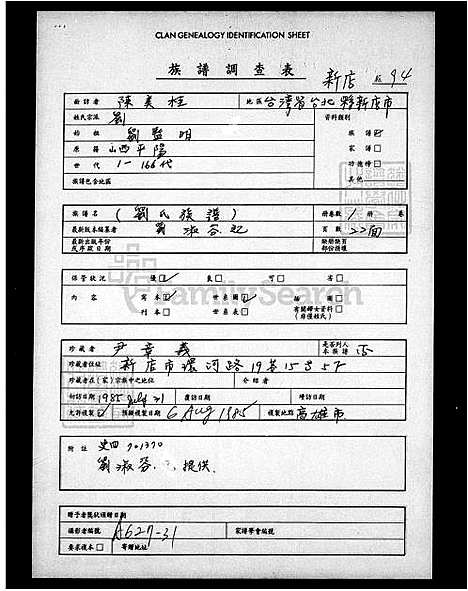 CLAN GENEALOGY IDENTIFICATION SHEET
族譜調查表 新店 94
勘訪者 陳美桂 地區 台灣省台北縣新店市
姓氏宗派 劉 資料類別
始祖 劉監明 族譜
原籍 山西平陽 家譜
世代 1-166代 功德榜
族譜包含地區 其他
族譜名 (劉氏族譜) 冊卷數 1 冊 卷
最新版本編纂者 劉淑芬 頁數 22面
最新出版年份或序跋日期 缺册缺頁部份描述
保管狀況 優 良 可 劣
內容 寫本 世系圖 插圖
刊本 世系表 有關婦女資料(自懂姓氏)
FamilySearch
珍藏者 尹章義 是否列入本族譜 否
珍藏者住址 新店市環河路19巷15号5F
珍藏者在(家)宗族中之地位 介紹者
初訪日期 1985 覆訪日期 增訪日期
允許複製 預擬複製日期 6 Aug 1985 複製地點 高雄市
附註 史四 701370
劉淑芬 提供.
贈予者璽狀頒贈日期
攝影者編號 A627-31 家譜學會編號
要求複本 寄贈地址